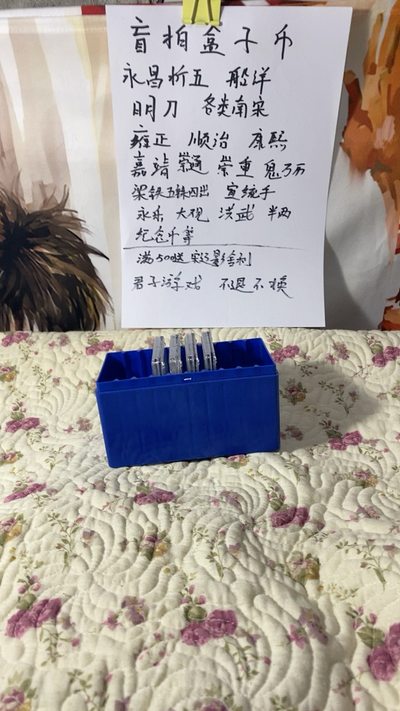 盲拍盒子币
永昌折五 船洋
明刀 各类南宋
雍正 顺治 康熙
嘉靖 崇通 崇重 鬼万历
梁铁五铢四出 宣统手
永乐 大观 洪武 半两
纪念币等
满50送
君子游戏 不退不换